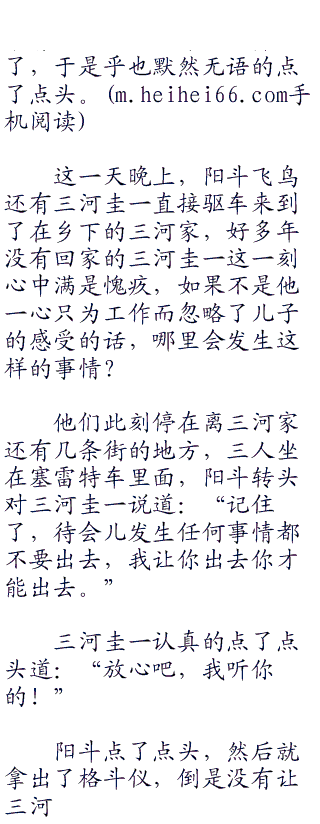 了，于是乎也默然无语的点
了点头。(m.heihei66.com手
机阅读)
这一天晚上，阳斗飞鸟
还有三河圭一直接驱车来到
了在乡下的三河家，好多年
没有回家的三河圭一这一刻
心中满是愧疚，如果不是他
一心只为工作而忽略了儿子
的感受的话，哪里会发生这
样的事情？
他们此刻停在离三河家
还有几条街的地方，三人坐
在塞雷特车里面，阳斗转头
对三河圭一说道：“记住
了，待会儿发生任何事情都
不要出去，我让你出去你才
能出去。”
三河圭一认真的点了点
头道：“放心吧，我听你
的！”
阳斗点了点头，然后就
拿出了格斗仪，倒是没有让
三河